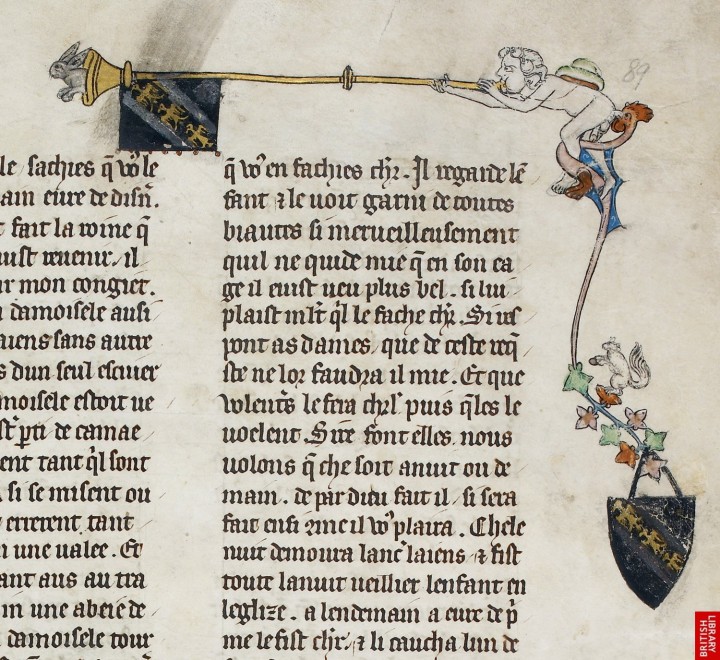 89
le sachies q̃ vo⁹ le
ain eure de disn̄.
t fait la roine q̃
uist reuenir. il
r mon congiet.
damoisele ausi
aiens sans autre
s dun seul escuier
moisele estoit ue
p̃ti de camae
ent tant q̃l sont
si se misent ou
errerent tant
n une ualee. Et
ant aus au tra
in une abeie de
damoisele tour
q̃ vo⁹ en fachies chr̃. Il regarde lẽ
fant ⁊ le uoit garni de toutes
biautes si merueilleusement
quil ne quide mie q̃ en son ea
ge il euist ueu plus bel. si lui
plaist ml̃t q̃l le fache chr̃. Si res
pont as dames, que de ceste req̃
ste ne lor faudra il mie. Et que
volent̃s le fera chrl̃ puis q̃les le
uoelent. Sire font elles. nous
uolons q̃ che soit anuit ou de
main. de par dieu fait il. si sera
fait ensi ⁊me il vo⁹ plaira. Chele
nuit demoura lanc̃ laiens ⁊ fist
toute lanuit ueillier lenfant en
leglize. a lendemain a eure de p̃
me le fist chr̃. ⁊ li caucha lun de
BRITISH
LIBRARY